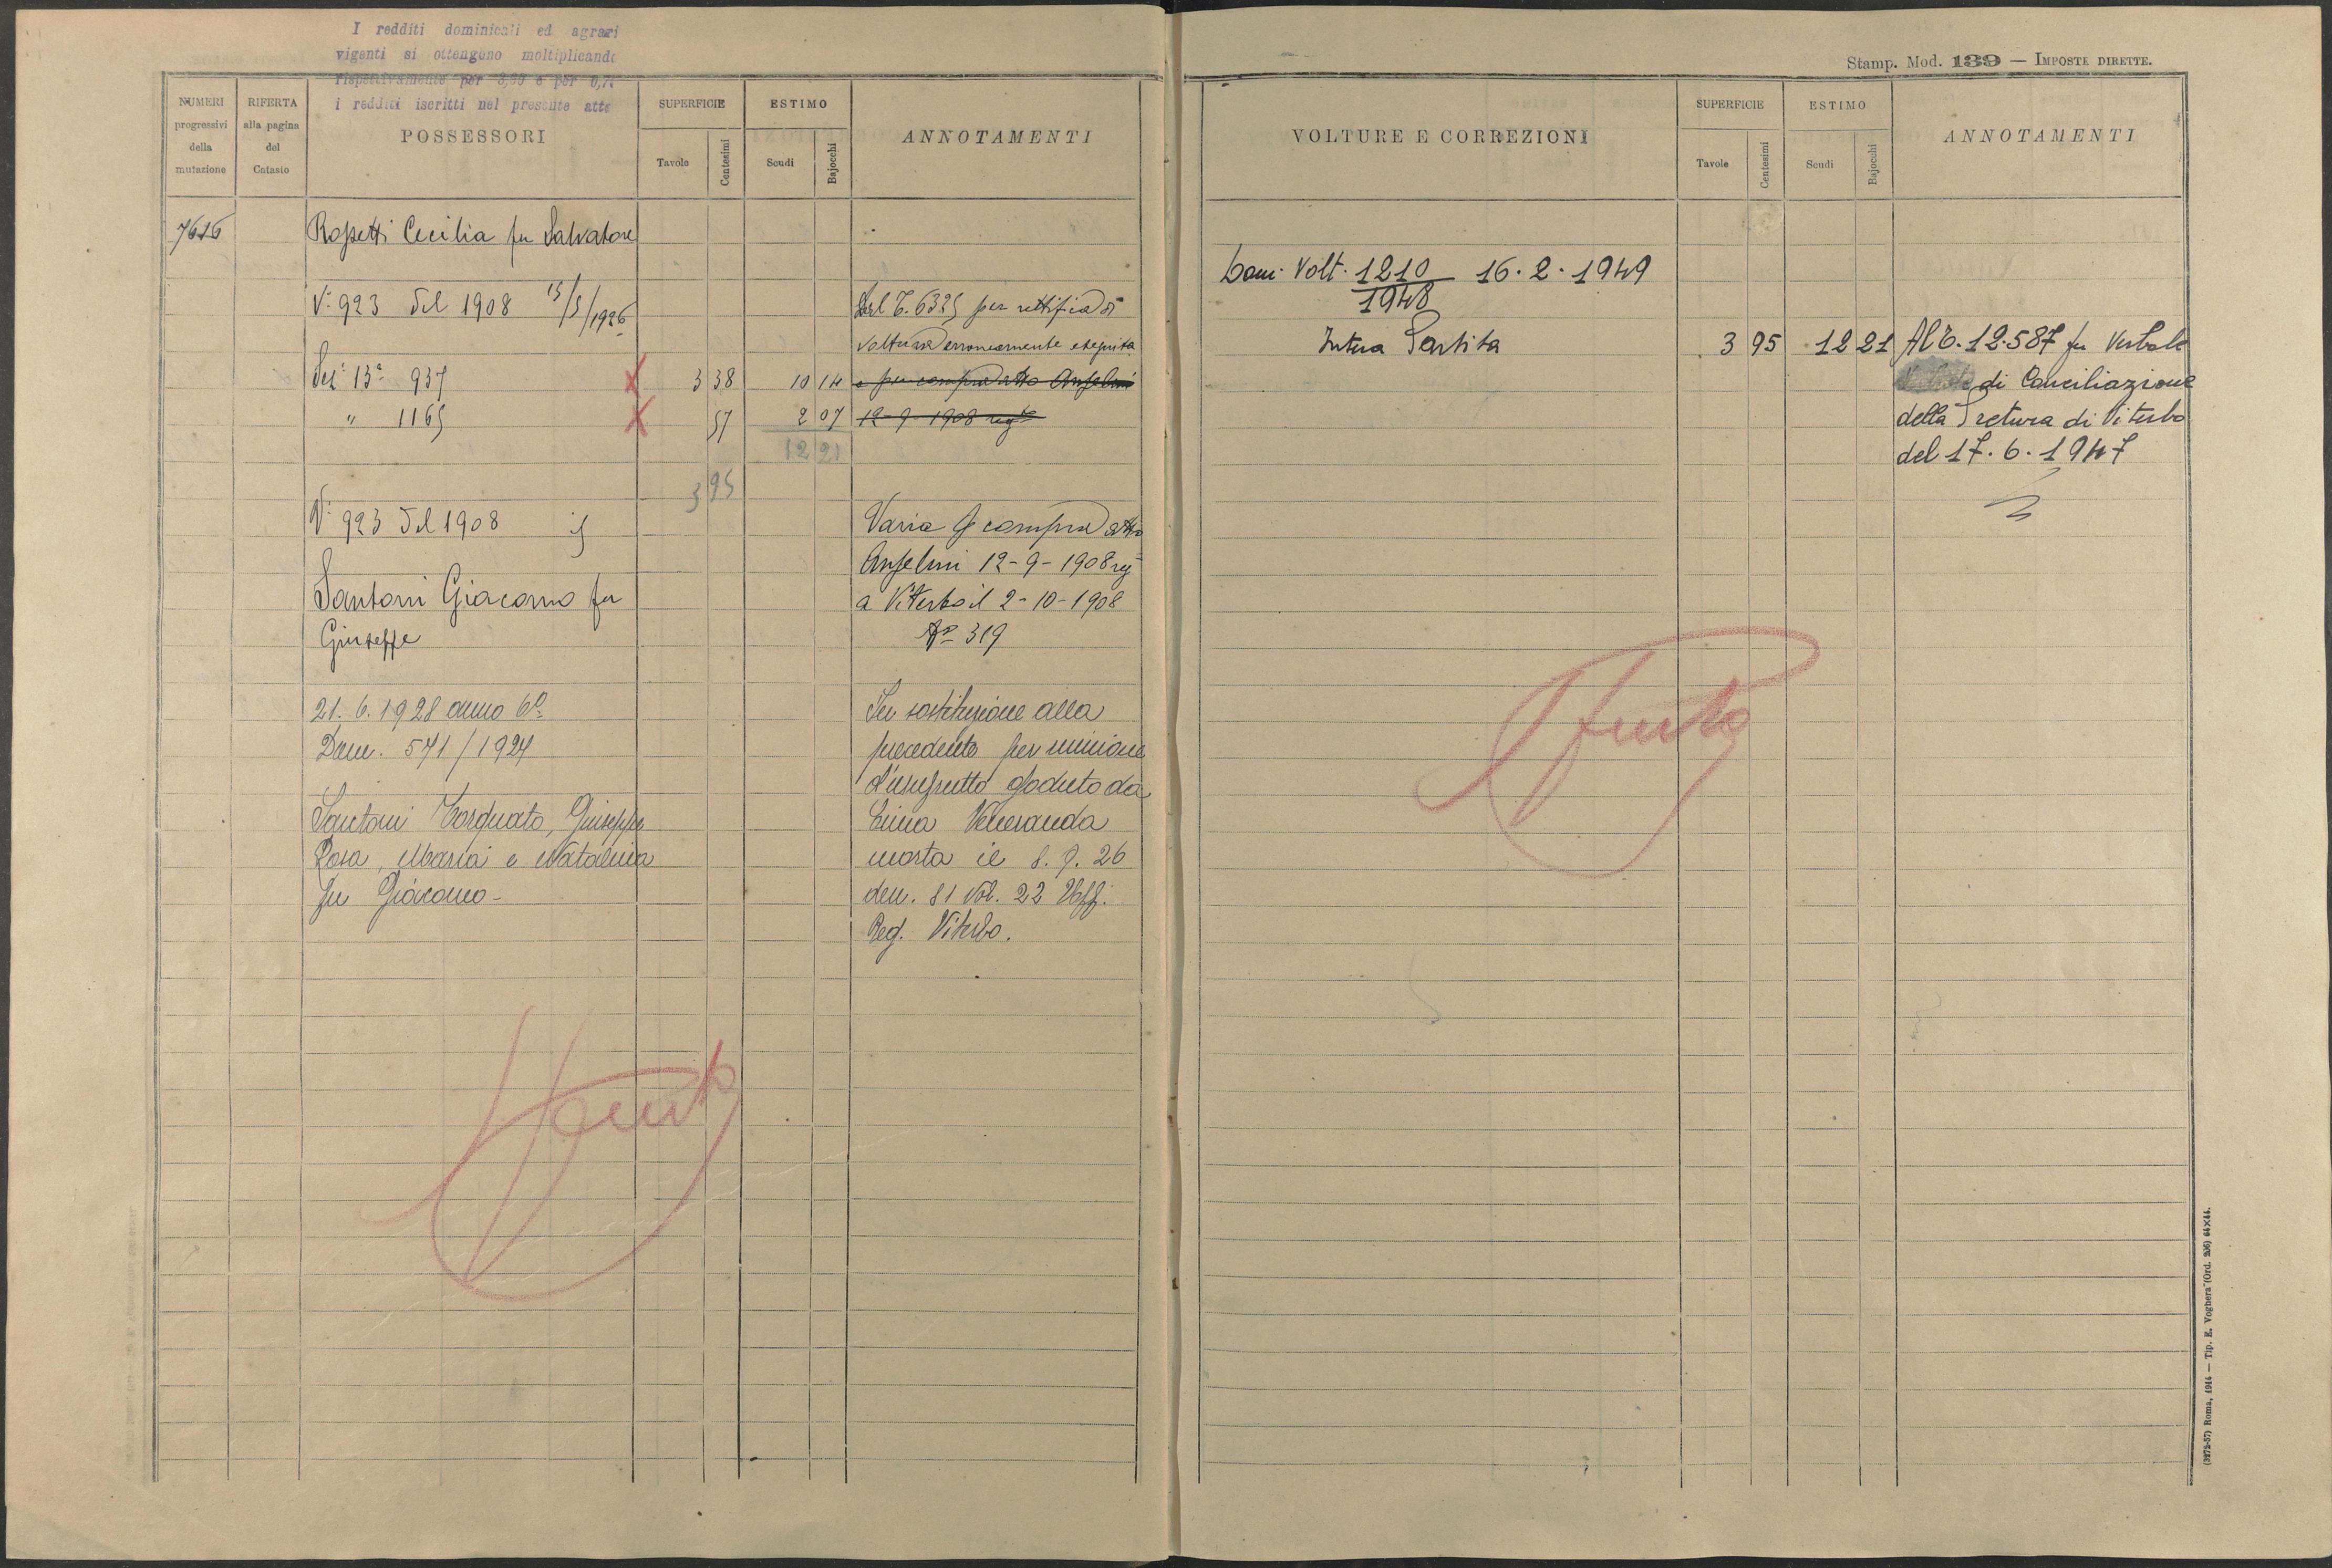 I redditi dominicali ed agrari
vigenti si ottengono moltiplicando
rispettivamente per e per
i redditi iscritti nel presente atto
NUMERI progressivi della mutazione
RIFERTA alla pagina del Catasto
POSSESSORI
SUPERFICIE
Tavole
Centesimi
ESTIMO
Scudi
Bajocchi
ANNOTAMENTI
Rossetti Cecilia fu Salvatore
V. 923 del 1908 15/5/1926
Dal T. 6325 per rettifica di
voltura erroneamente eseguita
Sez. 13ª 937 3 38 10 14 e per compra atto Anselmi
" 1165 57 2 07 12-9-1908 regto
12 21
3 95
V. 923 del 1908
Santoni Giacomo fu
Giuseppe
Varia per compra atto
Anselmi 12-9-1908 reg
a Viterbo il 2-10-1908
Nº 319
21.6.1928 anno 6º
Dom. 541/1927
Santoni Torquato, Giuseppe
Rosa, Maria e Natalina
fu Giacomo -
In sostituzione alla
precedente per riunione
d'usufrutto goduto da
Veneranda
morta il 8.9.26
den. 81 vol. 22 Uff.
Reg. Viterbo.
Stamp. Mod. 139 — IMPOSTE DIRETTE.
VOLTURE E CORREZIONI
SUPERFICIE
Tavole
Centesimi
ESTIMO
Scudi
Bajocchi
ANNOTAMENTI
Dom. Volt. 1210/1948 16.2.1949
Intera Partita 3 95 12 21 Al T. 12.587 per Verbale
di Conciliazione
della Pretura di Viterbo
del 17.6.1947
(3272-57) Roma, 1914 — Tip. E. Voghera (Ord. 206) 64×44.